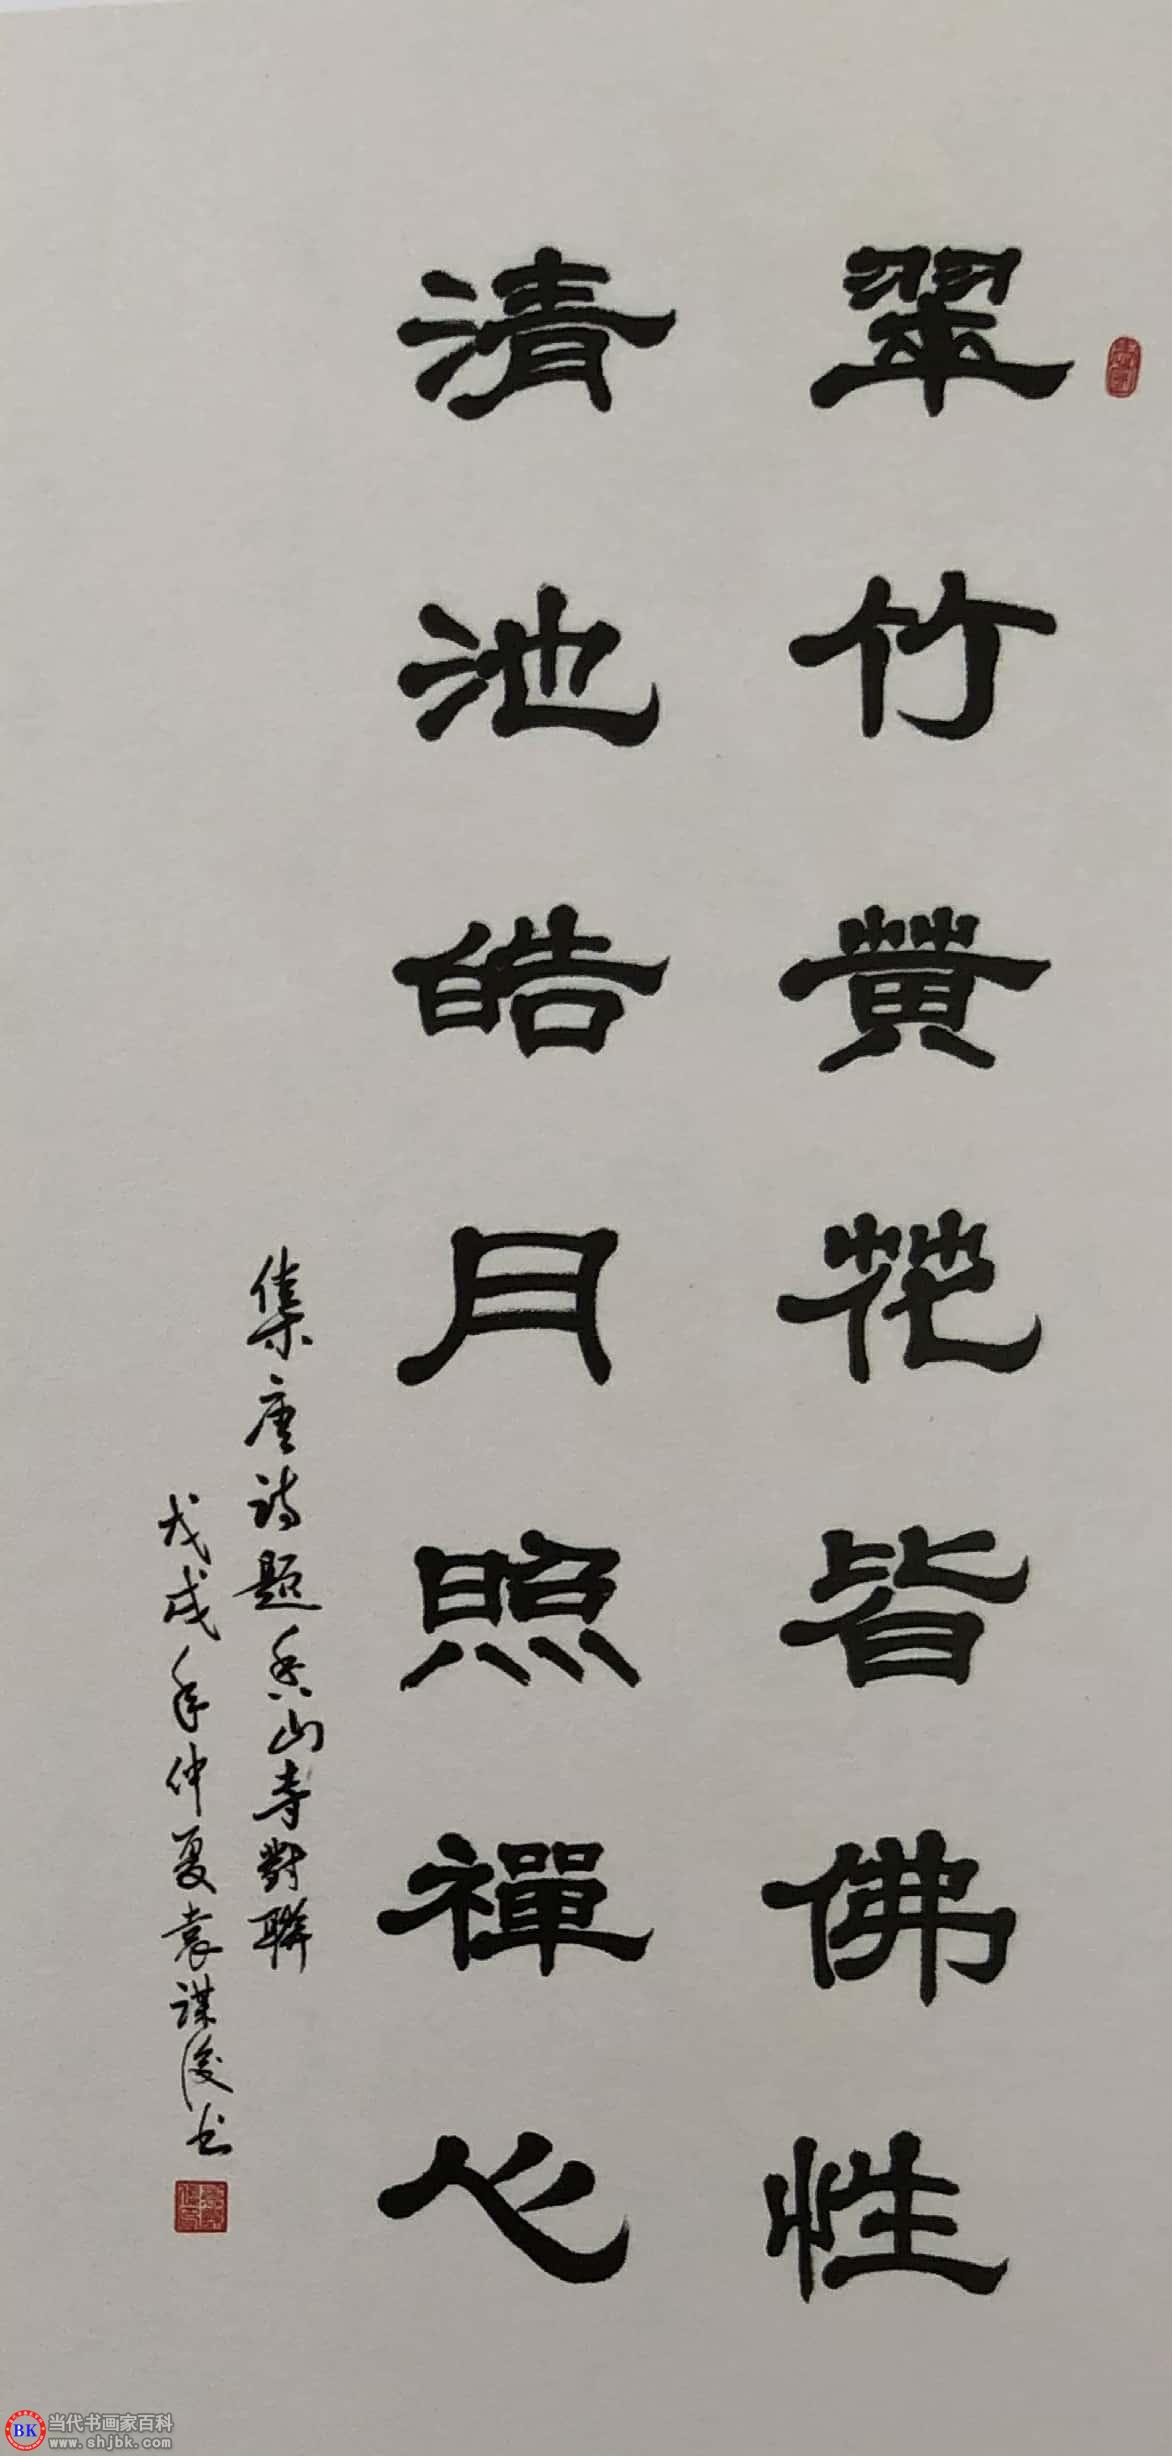 翠竹黄花皆佛性
清池皓月照禪心
集唐诗题香山寺對聯
戊戌年仲夏袁謀俊书
BK
当代书画家百科
www.shjbk.com